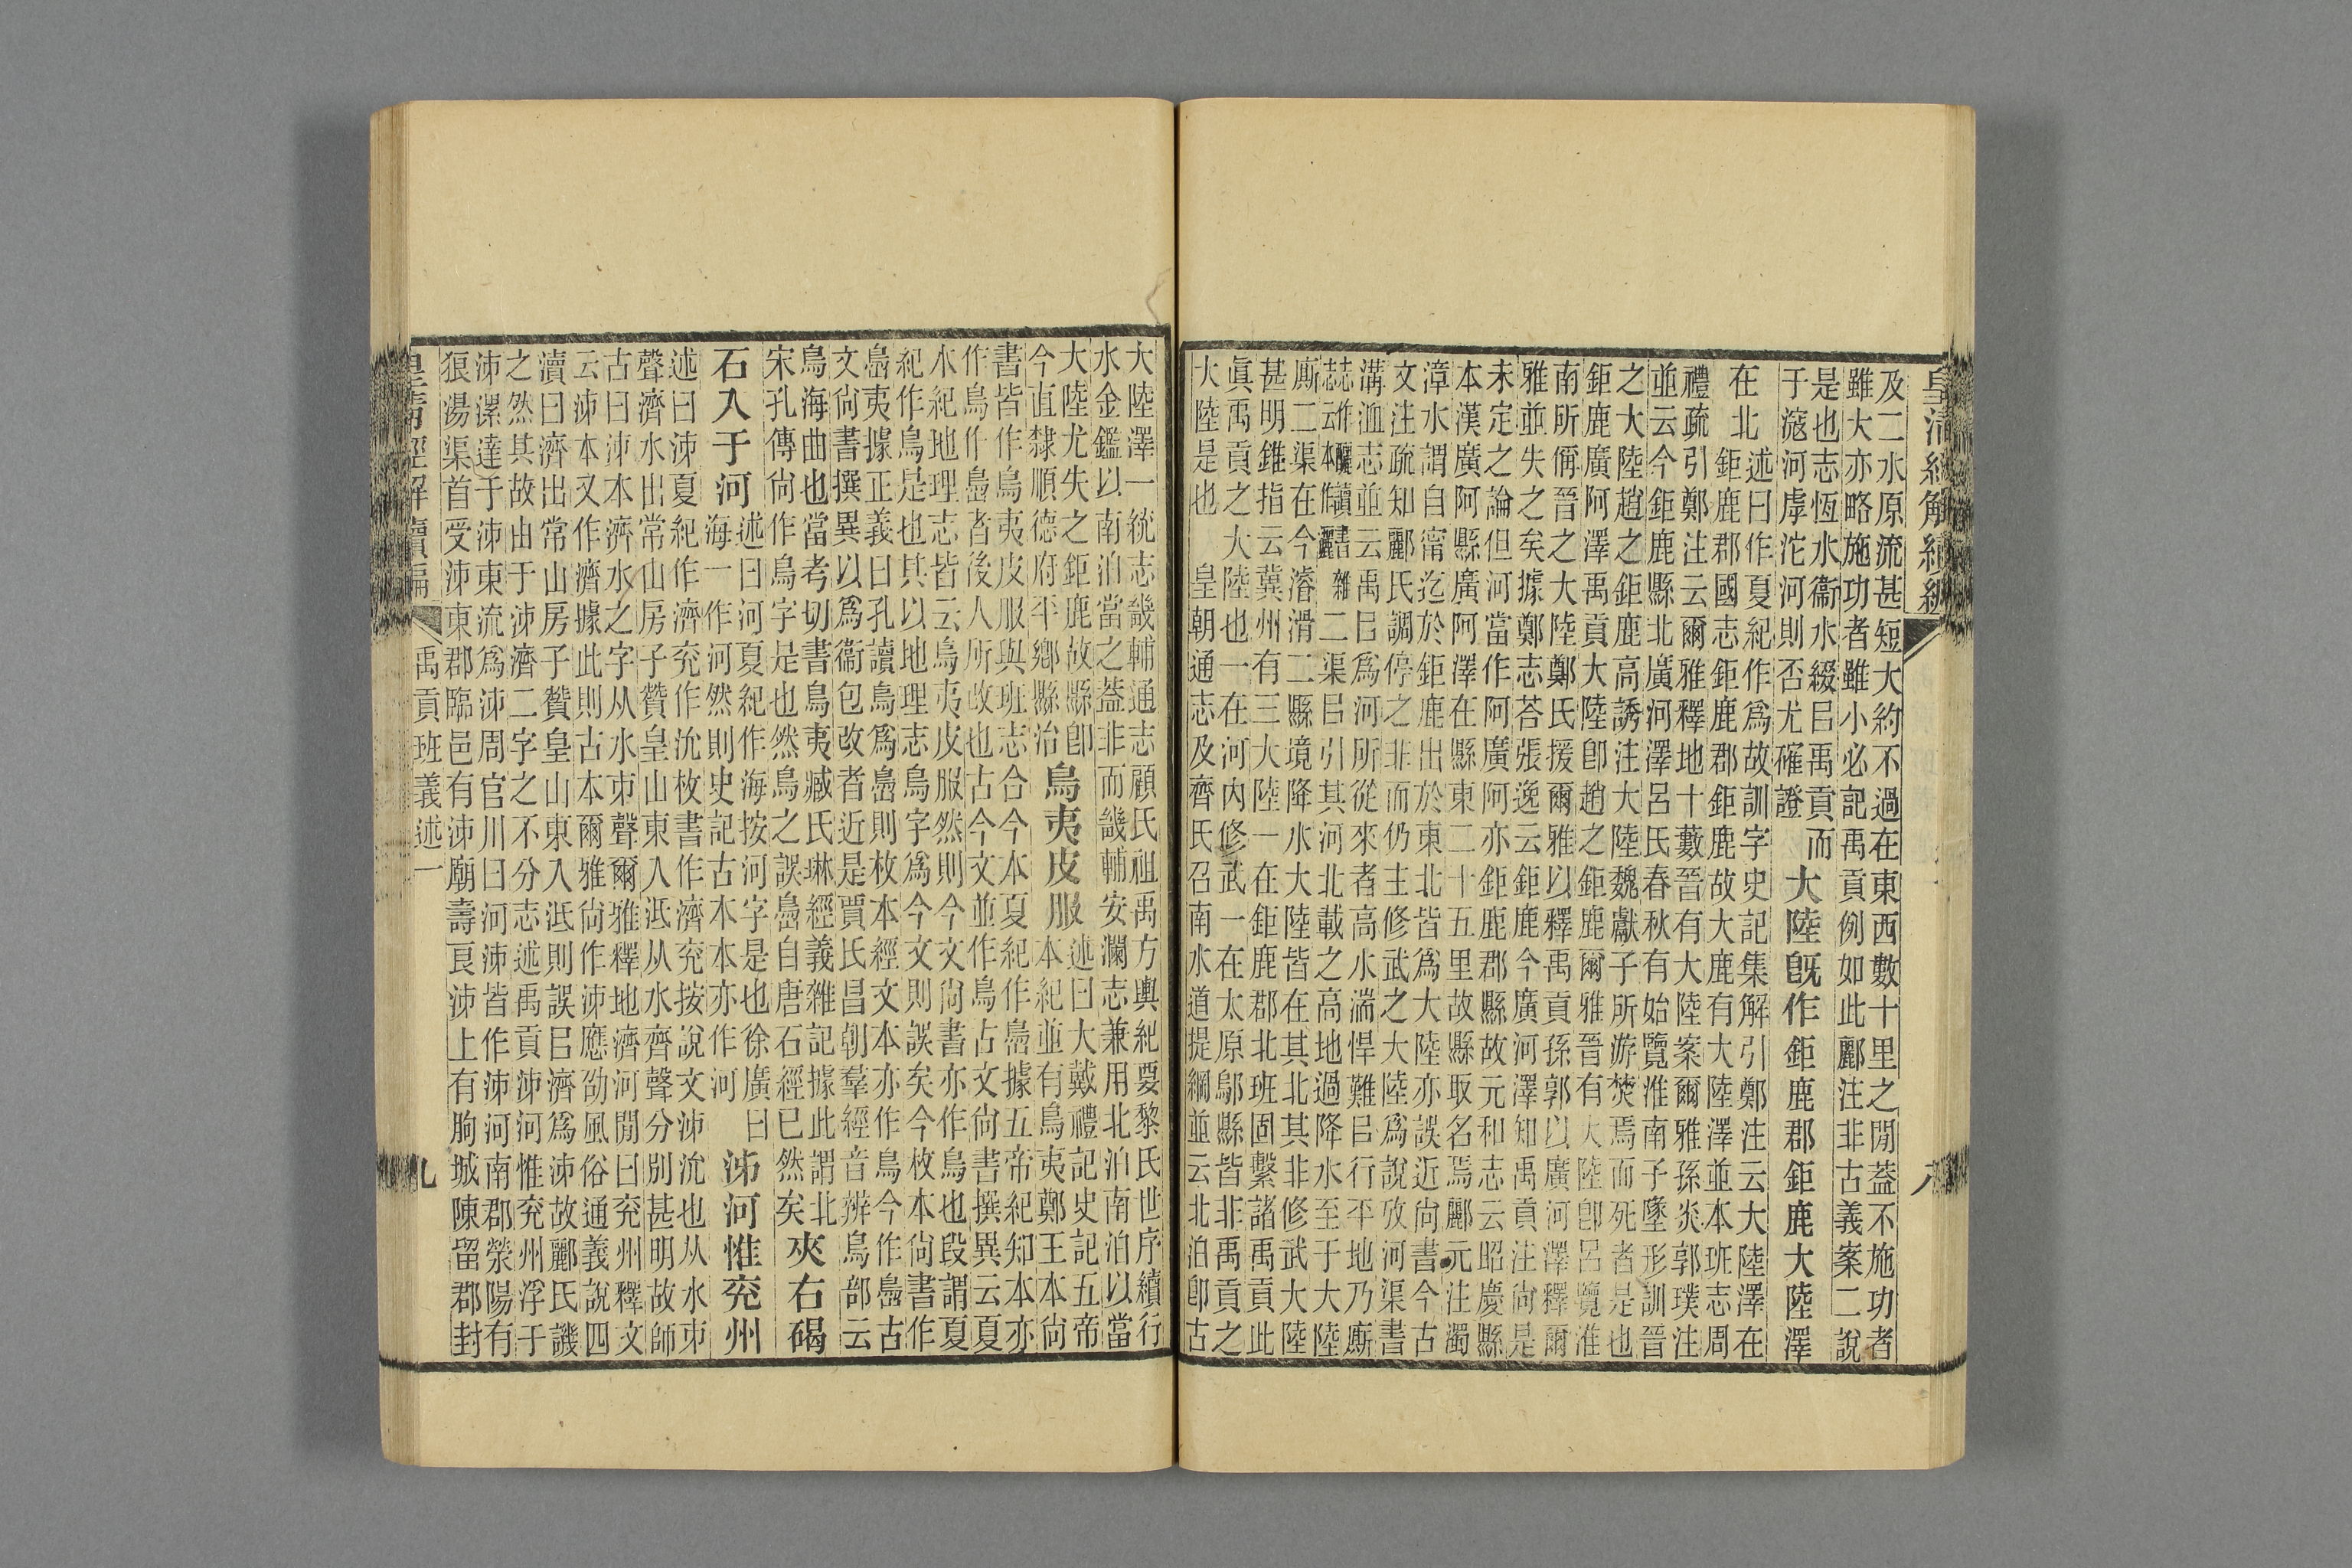 皇清經解續編
及二水原流甚短大約不過在東西數十里之閒蓋不施功者
雖大亦略施功者雖小必記禹貢例如此酈注非古義案二說
是也志恆水衞水綴㠯禹貢而
于滱河虖沱河則否尤確證
大陸旣作鉅鹿郡鉅鹿大陸澤
在北
述曰作夏紀作爲故訓字史記集解引鄭注云大陸澤在
鉅鹿郡國志鉅鹿郡鉅鹿故大鹿有大陸澤並本班志周
禮疏引鄭注云爾雅釋地十藪晉有大陸案爾雅孫炎郭璞注
並云今鉅鹿縣北廣河澤呂氏春秋有始覽淮南子墬形訓晉
之大陸趙之鉅鹿高誘注大陸魏獻子所游焚焉而死者是也
鉅鹿廣阿澤禹貢大陸卽趙之鉅鹿爾雅晉有大陸卽呂覽淮
南所偁晉之大陸鄭氏援爾雅以釋禹貢孫郭以廣河澤釋爾
雅並失之矣據鄭志荅張逸云鉅鹿今廣河澤知禹貢注尙是
未定之論但河當作阿廣阿亦鉅鹿郡縣故元和志云昭慶縣
本漢廣阿縣廣阿澤在縣東二十五里故縣取名焉酈元注濁
漳水謂自甯迄於鉅鹿出於東北皆爲大陸亦誤近尙書今古
文注疏知酈氏調停之非而仍主修武之大陸爲說攷河渠書
溝洫志並云禹㠯爲河所從來者高水湍悍難㠯行平地乃廝
二渠㠯引其河北載之高地過降水至于大陸
廝二渠在今濬滑二縣境降水大陸皆在其北其非修武大陸
甚明錐指云冀州有三大陸一在鉅鹿郡北班固繫諸禹貢此
眞禹貢之大陸也一在河內修武一在太原鄔縣皆非禹貢之
大陸是也皇朝通志及齊氏召南水道提綱並云北泊卽古
八
大陸澤一統志畿輔通志顧氏祖禹方輿紀要黎氏世序續行
水金鑑以南泊當之蓋非而畿輔安瀾志兼用北泊南泊以當
大陸尤失之鉅鹿故縣卽
今直隸順德府平鄉縣治
鳥夷皮服
述曰大戴禮記史記五帝
本紀並有鳥夷鄭王本尙
書皆作鳥夷皮服與班志合今本夏紀作島據五帝紀知本亦
作鳥作島者後人所改也古今文並作鳥古文尙書撰異云夏
本紀地理志皆云鳥夷皮服然則今文尙書亦作鳥也段謂夏
紀作鳥是也其以地理志鳥字爲今文則誤矣今枚本尙書作
島夷據正義曰孔讀鳥爲島則枚本經文本亦作鳥今作島古
文尙書撰異以爲衞包改者近是賈氏昌朝羣經音辨鳥部云
鳥海曲也當考切書鳥夷臧氏琳經義雜記據此謂北
宋孔傳尙作鳥字是也然鳥之誤島自唐石經已然矣
夾右碣
石入于河
述曰河夏紀作海按河字是也徐廣曰
海一作河然則史記古本本亦作河
泲河惟兗州
述曰泲夏紀作濟兗作沇枚書作濟兗按說文泲沇也从水𠂔
聲濟水出常山房子贊皇山東入泜从水齊聲分別甚明故師
古曰泲本濟水之字从水𠂔聲爾雅釋地濟河閒曰兗州釋文
云泲本又作濟據此則古本爾雅尙作泲應劭風俗通義說四
瀆曰濟出常山房子贊皇山東入泜則誤㠯濟爲泲故酈氏譏
之然其故由于泲濟二字之不分志述禹貢泲河惟兗州浮于
泲漯達于泲東流爲泲周官川曰河泲皆作泲河南郡滎陽有
狼湯渠首受泲東郡臨邑有泲廟壽良泲上有朐城陳留郡封
皇淸經解續編
禹貢班義述一
九